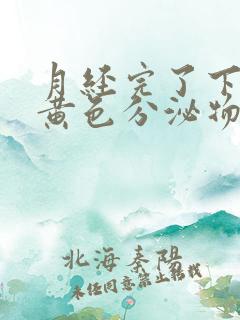 月经完了下
黄色分泌物
北海秦阳
未经同意禁止转载